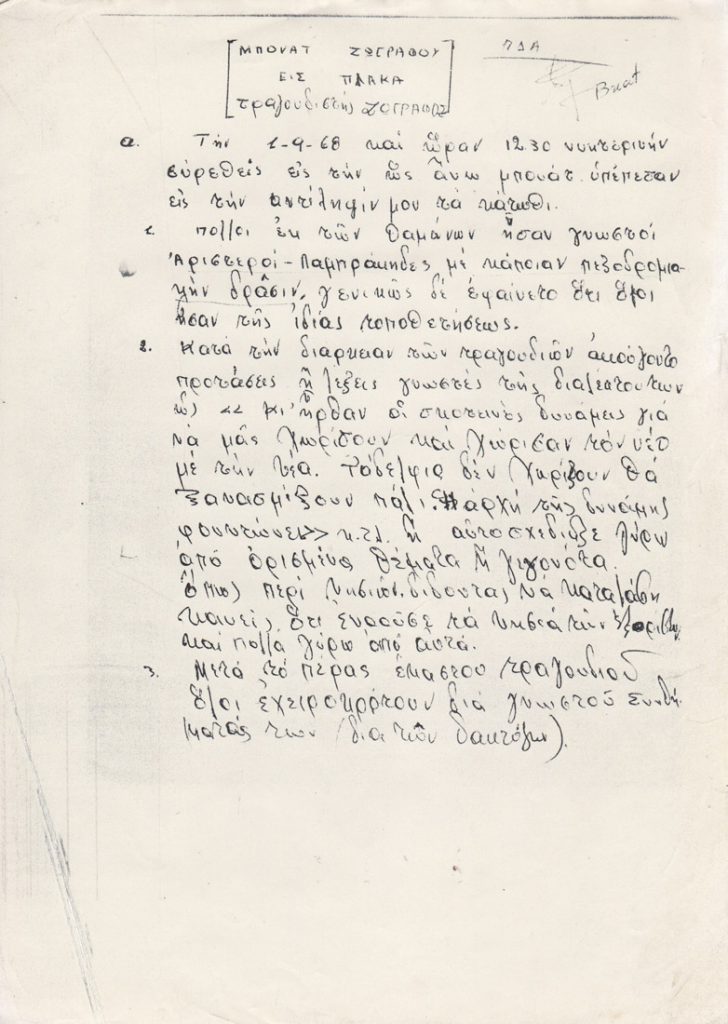 ΜΠΟΥΑΤ ΖΩΓΡΑΦΟΥ
ΕΙΣ ΠΛΑΚΑ
τραγουδιστής ΖΩΓΡΑΦΟΣ
ΠΔΑ
α. Τήν 1-9-68 καί ὥραν 12.30 νυκτερινήν
εὑρεθείς εἰς τήν ὡς ἄνω μπουάτ ὑπέπεσαν
εἰς τήν ἀντίληψίν μου τά κάτωθι.
1. πολλοί ἐκ τῶν θαμώνων ἦσαν γνωστοί
Ἀριστεροί - Λαμπράκηδες μέ κάποιαν πεζοδρομια-
κήν δρᾶσιν, γενικῶς δέ ἐφαίνετο ὅτι ὅλοι
ἦσαν τῆς ἰδίας τοποθετήσεως.
2. Κατά τήν διάρκειαν τῶν τραγουδιῶν ἀκούγοντο
προτάσεις ἤ λέξεις γνωστές τῆς διαλέκτου των
ὡς << κι' ἦρθαν οἱ σκοτεινές δυνάμεις γιά
νά μᾶς χωρίσουν καί χώρισαν τόν νέο
μέ τήν νέα. Τἀδέλφια δέν χωρίζουν θά
ξανασμίξουν πάλι. Ἡ ἀρχή τῆς δυνάμης
φουντώνει>> κ.τ.λ. ἤ αὐτοσχεδίαζε γύρω
ἀπό ὁρισμένα θέματα ἤ γεγονότα.
Ὅπως περί νησιῶν, δίδοντας νά καταλάβη
κανείς ὅτι ἐννοοῦσε τά νησιά τῶν ἐξορίστων
καί πολλά γύρω ἀπό αὐτά.
3. Μετά τό πέρας ἑκάστου τραγουδιοῦ
ὅλοι ἐχειροκρότουν διά γνωστοῦ συνθή-
ματός των (διά τῶν δακτύλων).